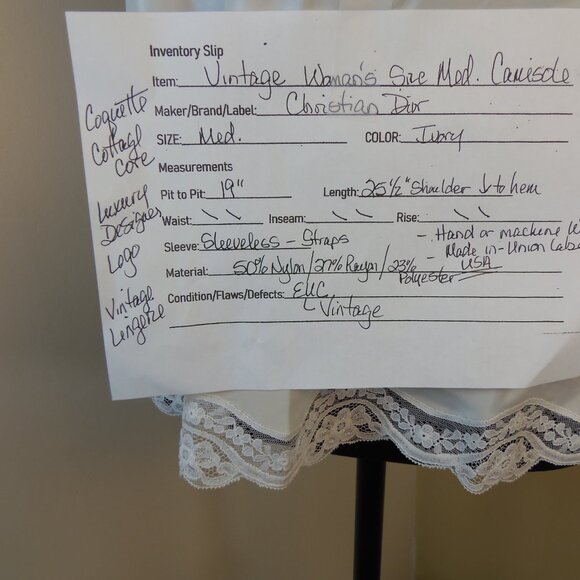 Inventory Slip
Item: Vintage Woman's Size Med. Camisole
Maker/Brand/Label: Christian Dior
SIZE: Med. COLOR: Ivory
Measurements
Pit to Pit: 19" Length: 25 1/2" Shoulder ↓ to hem
Waist: \ \ Inseam: \ \ Rise: \ \
Sleeve: Sleeveless - Straps
- Hand or machine W
- Made in - Union Labe
USA
Material: 50% Nylon/27% Rayon/23%
Polyester
Condition/Flaws/Defects: EUC
Vintage
Coquette
Cottage
Core
Luxury
Designer
Logo
Vintage
Lingerie